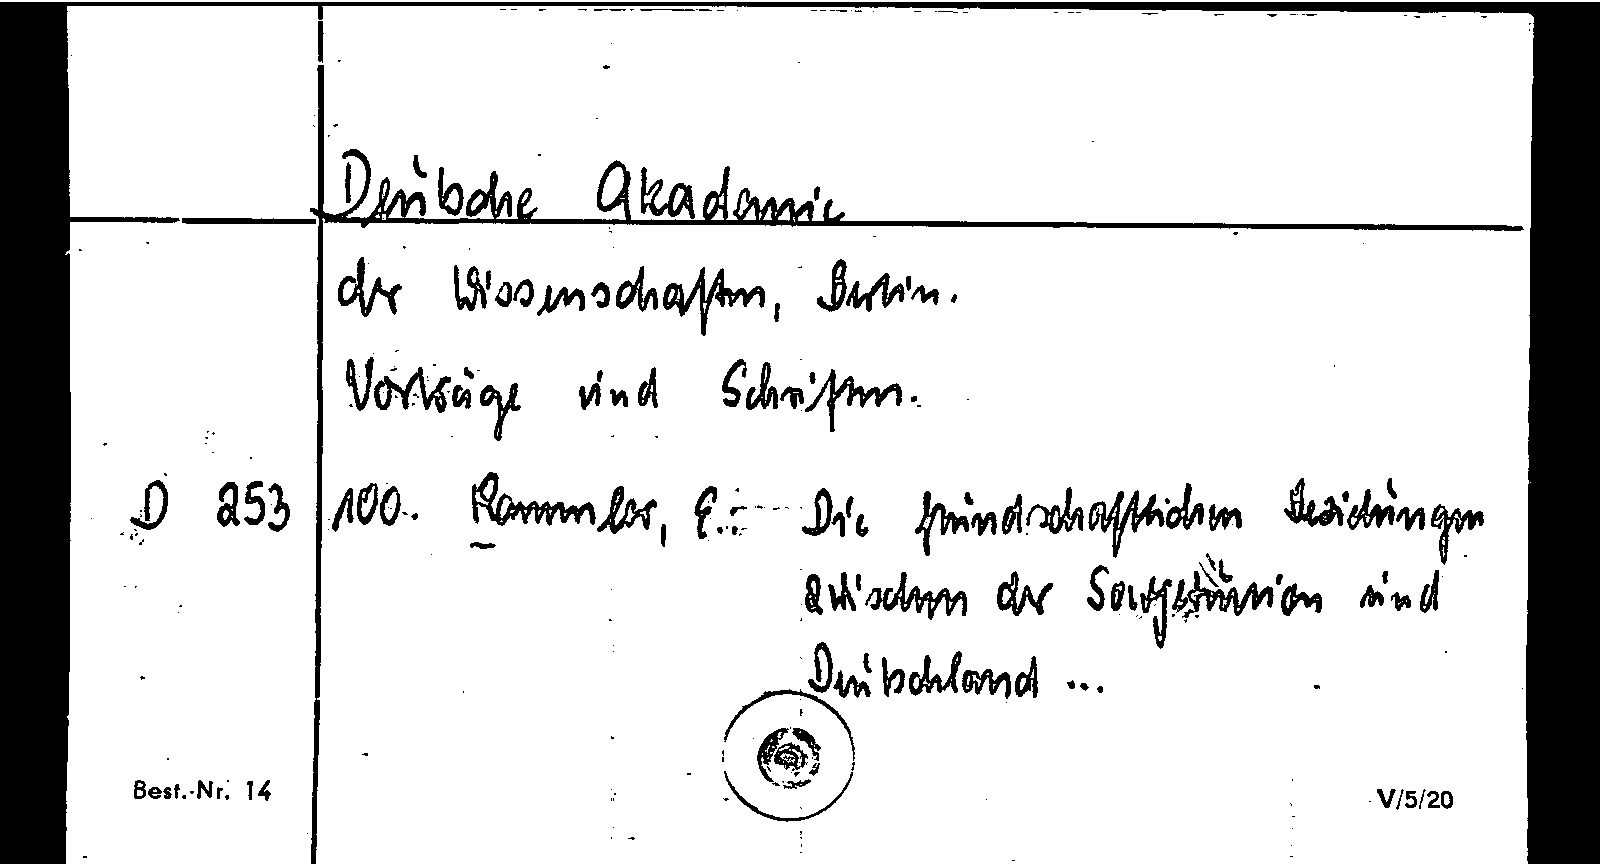 Deutsche Akademie
der Wissenschaften, Berlin.
Vorträge und Schriften.
D 253 100. Rammler, E.: Die freundschaftlichen Beziehungen
zwischen der Sowjetunion und
Deutschland ...
Best.-Nr. 14 V/5/20